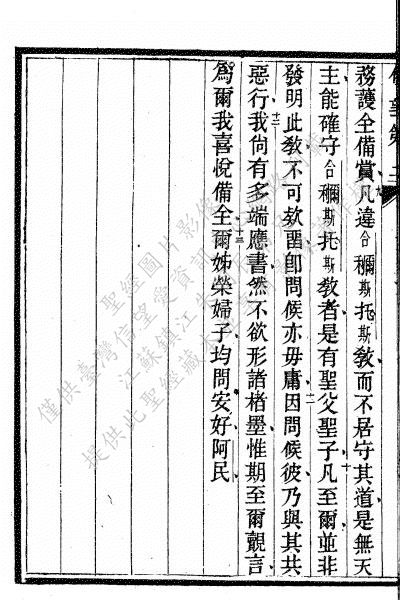 務護全備賞九凡違合穪斯托斯教而不居守其道是無天
主能確守合穪斯托斯教者是有聖父聖子十凡至爾並非
發明此教不可欵畱卽問候亦毋庸十一因問候彼乃與其共
惡行十二我尙有多端應書然不欲形諸楮墨惟期至爾覿言
爲爾我喜悅備全十三爾姊榮婦子均問安好阿民
僅供臺灣信望愛資訊
聖經圖片影像
江蘇鎮江朱
提供此聖經藏本